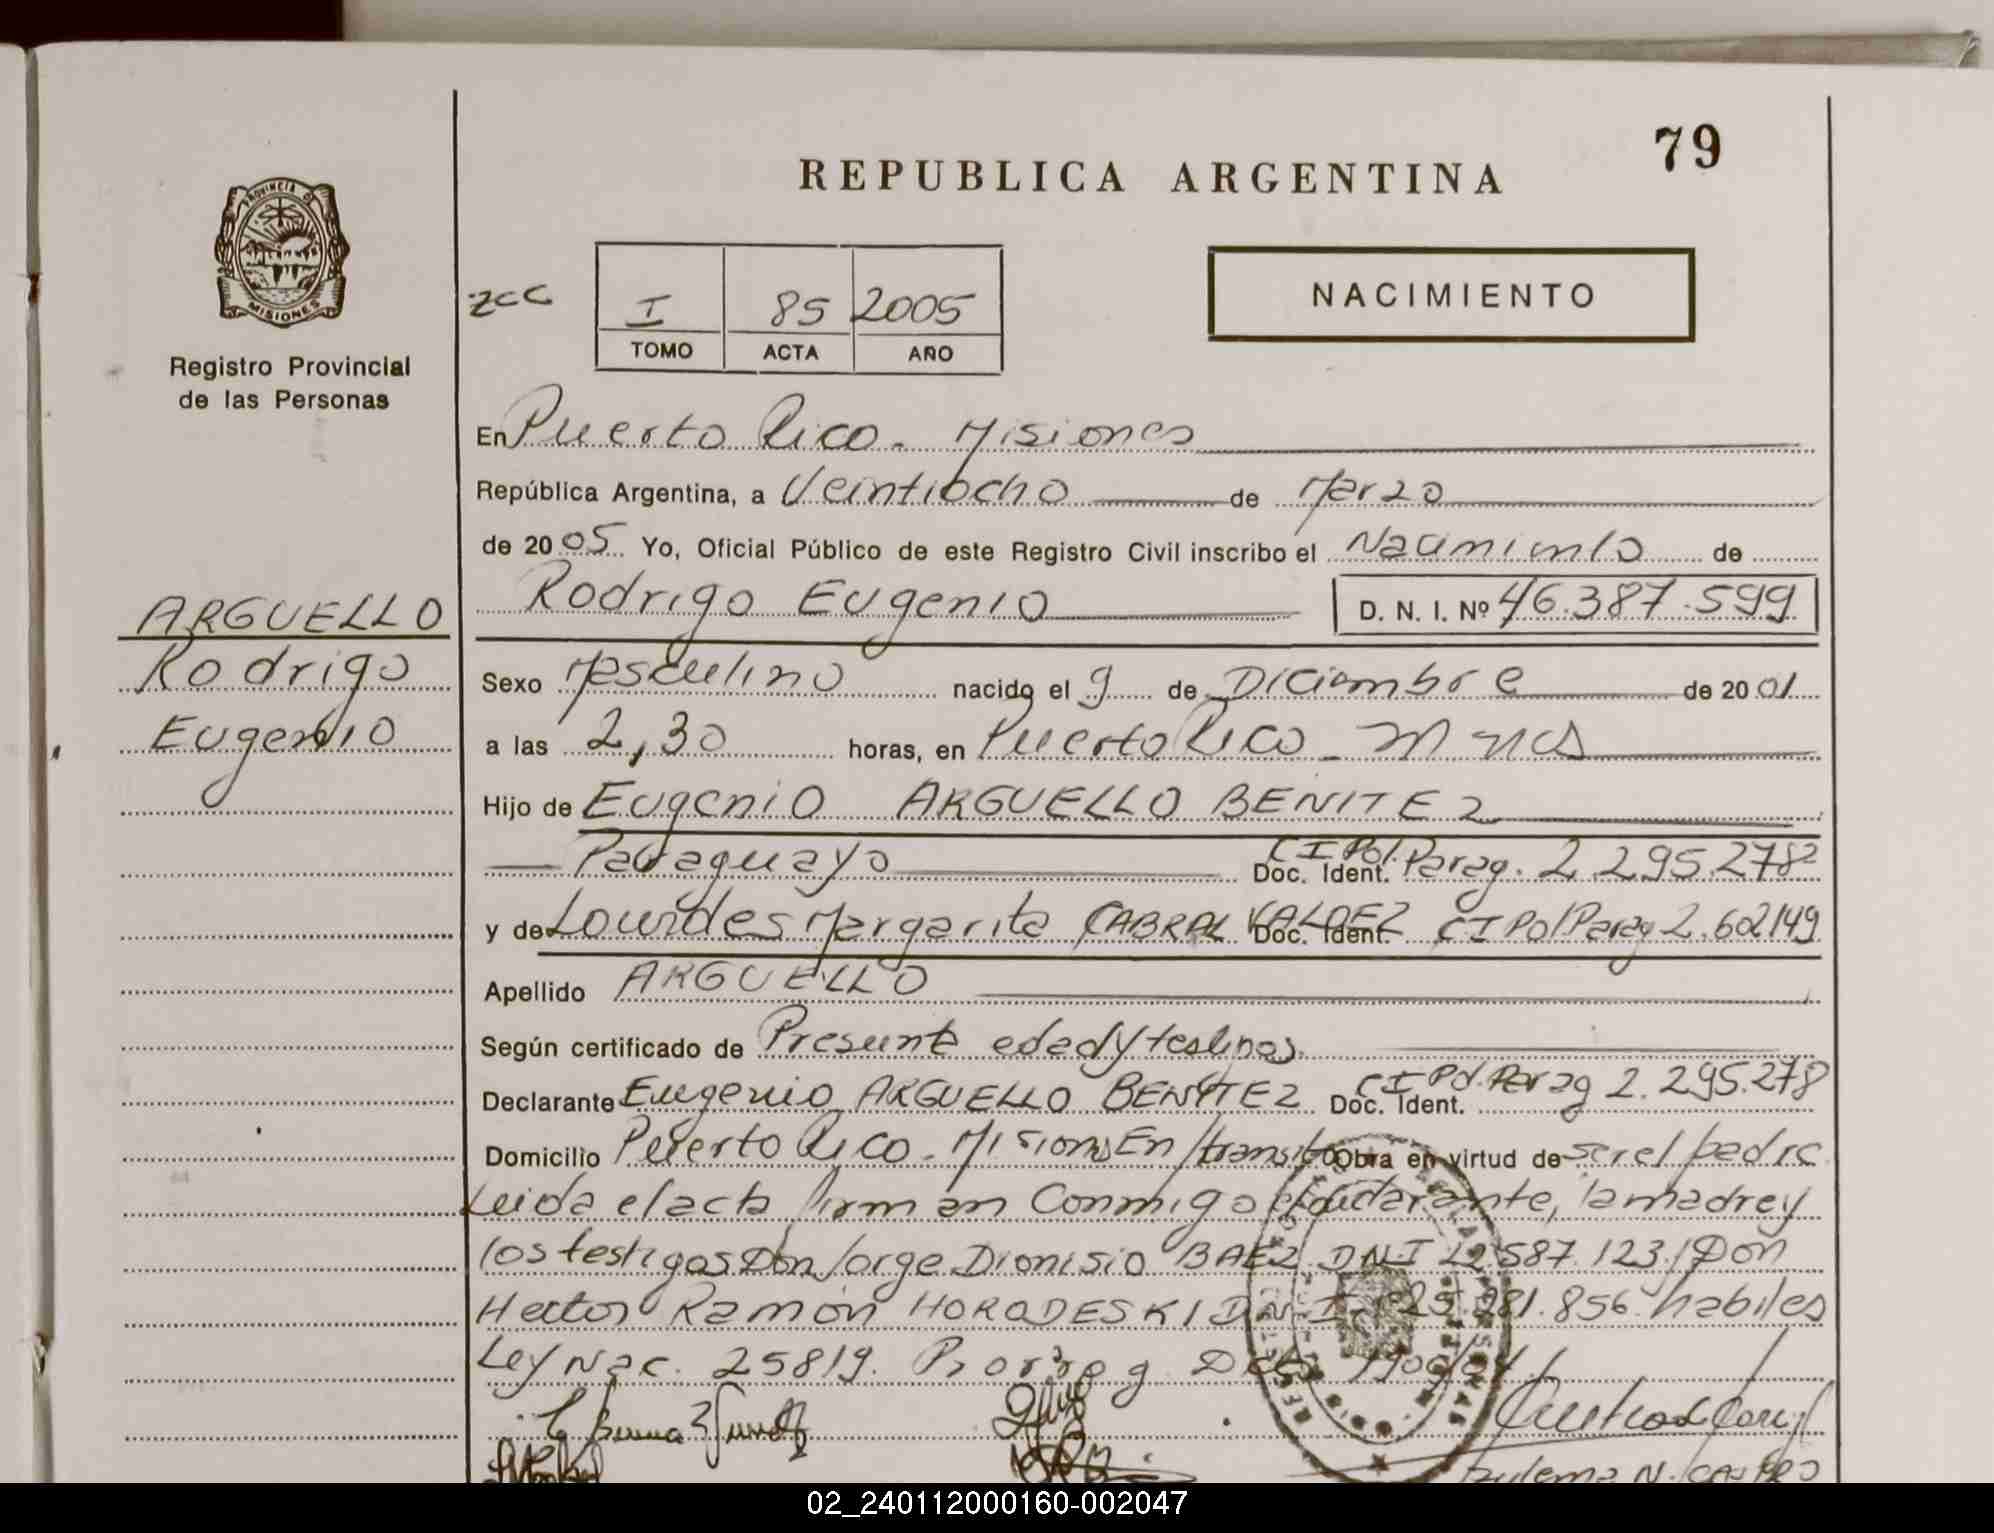 79
REPUBLICA ARGENTINA
PROVINCIA DE
MISIONES
Registro Provincial
de las Personas
ZCC
I 85 2005
TOMO ACTA AÑO
NACIMIENTO
En Puerto Rico - Misiones
República Argentina, a Veintiocho de Marzo
de 2005 Yo, Oficial Público de este Registro Civil inscribo el Nacimiento de
ARGUELLO
Rodrigo
Eugenio
Rodrigo Eugenio D. N. I. Nº 46.387.599
Sexo Masculino nacido el 9 de Diciembre de 2001
a las 2,30 horas, en Puerto Rico - Mnes
Hijo de Eugenio ARGUELLO BENITEZ
Paraguayo Doc. Ident. CI Pol. Parag. 2.295.278
y de Lourdes Margarita CABRAL VALDEZ Doc. Ident. CI Pol Parag 2.602149
Apellido ARGUELLO
Según certificado de Presunta edad y testigos.
Declarante Eugenio ARGUELLO BENITEZ Doc. Ident. CI Pol. Parag 2.295.278
Domicilio Puerto Rico - Misiones En transito Obra en virtud de ser el padre
Leida el acta firman Conmigo el declarante, la madre y
los testigos Don Jorge Dionisio BAEZ DNI 12.587.123 y Don
Hector Ramón HORODESKI DNI 25.281.856 habiles
Ley Nac. 25819. Prorrog. Dcto 1900/04.
Zulema N. CASTRO
02_240112000160-002047